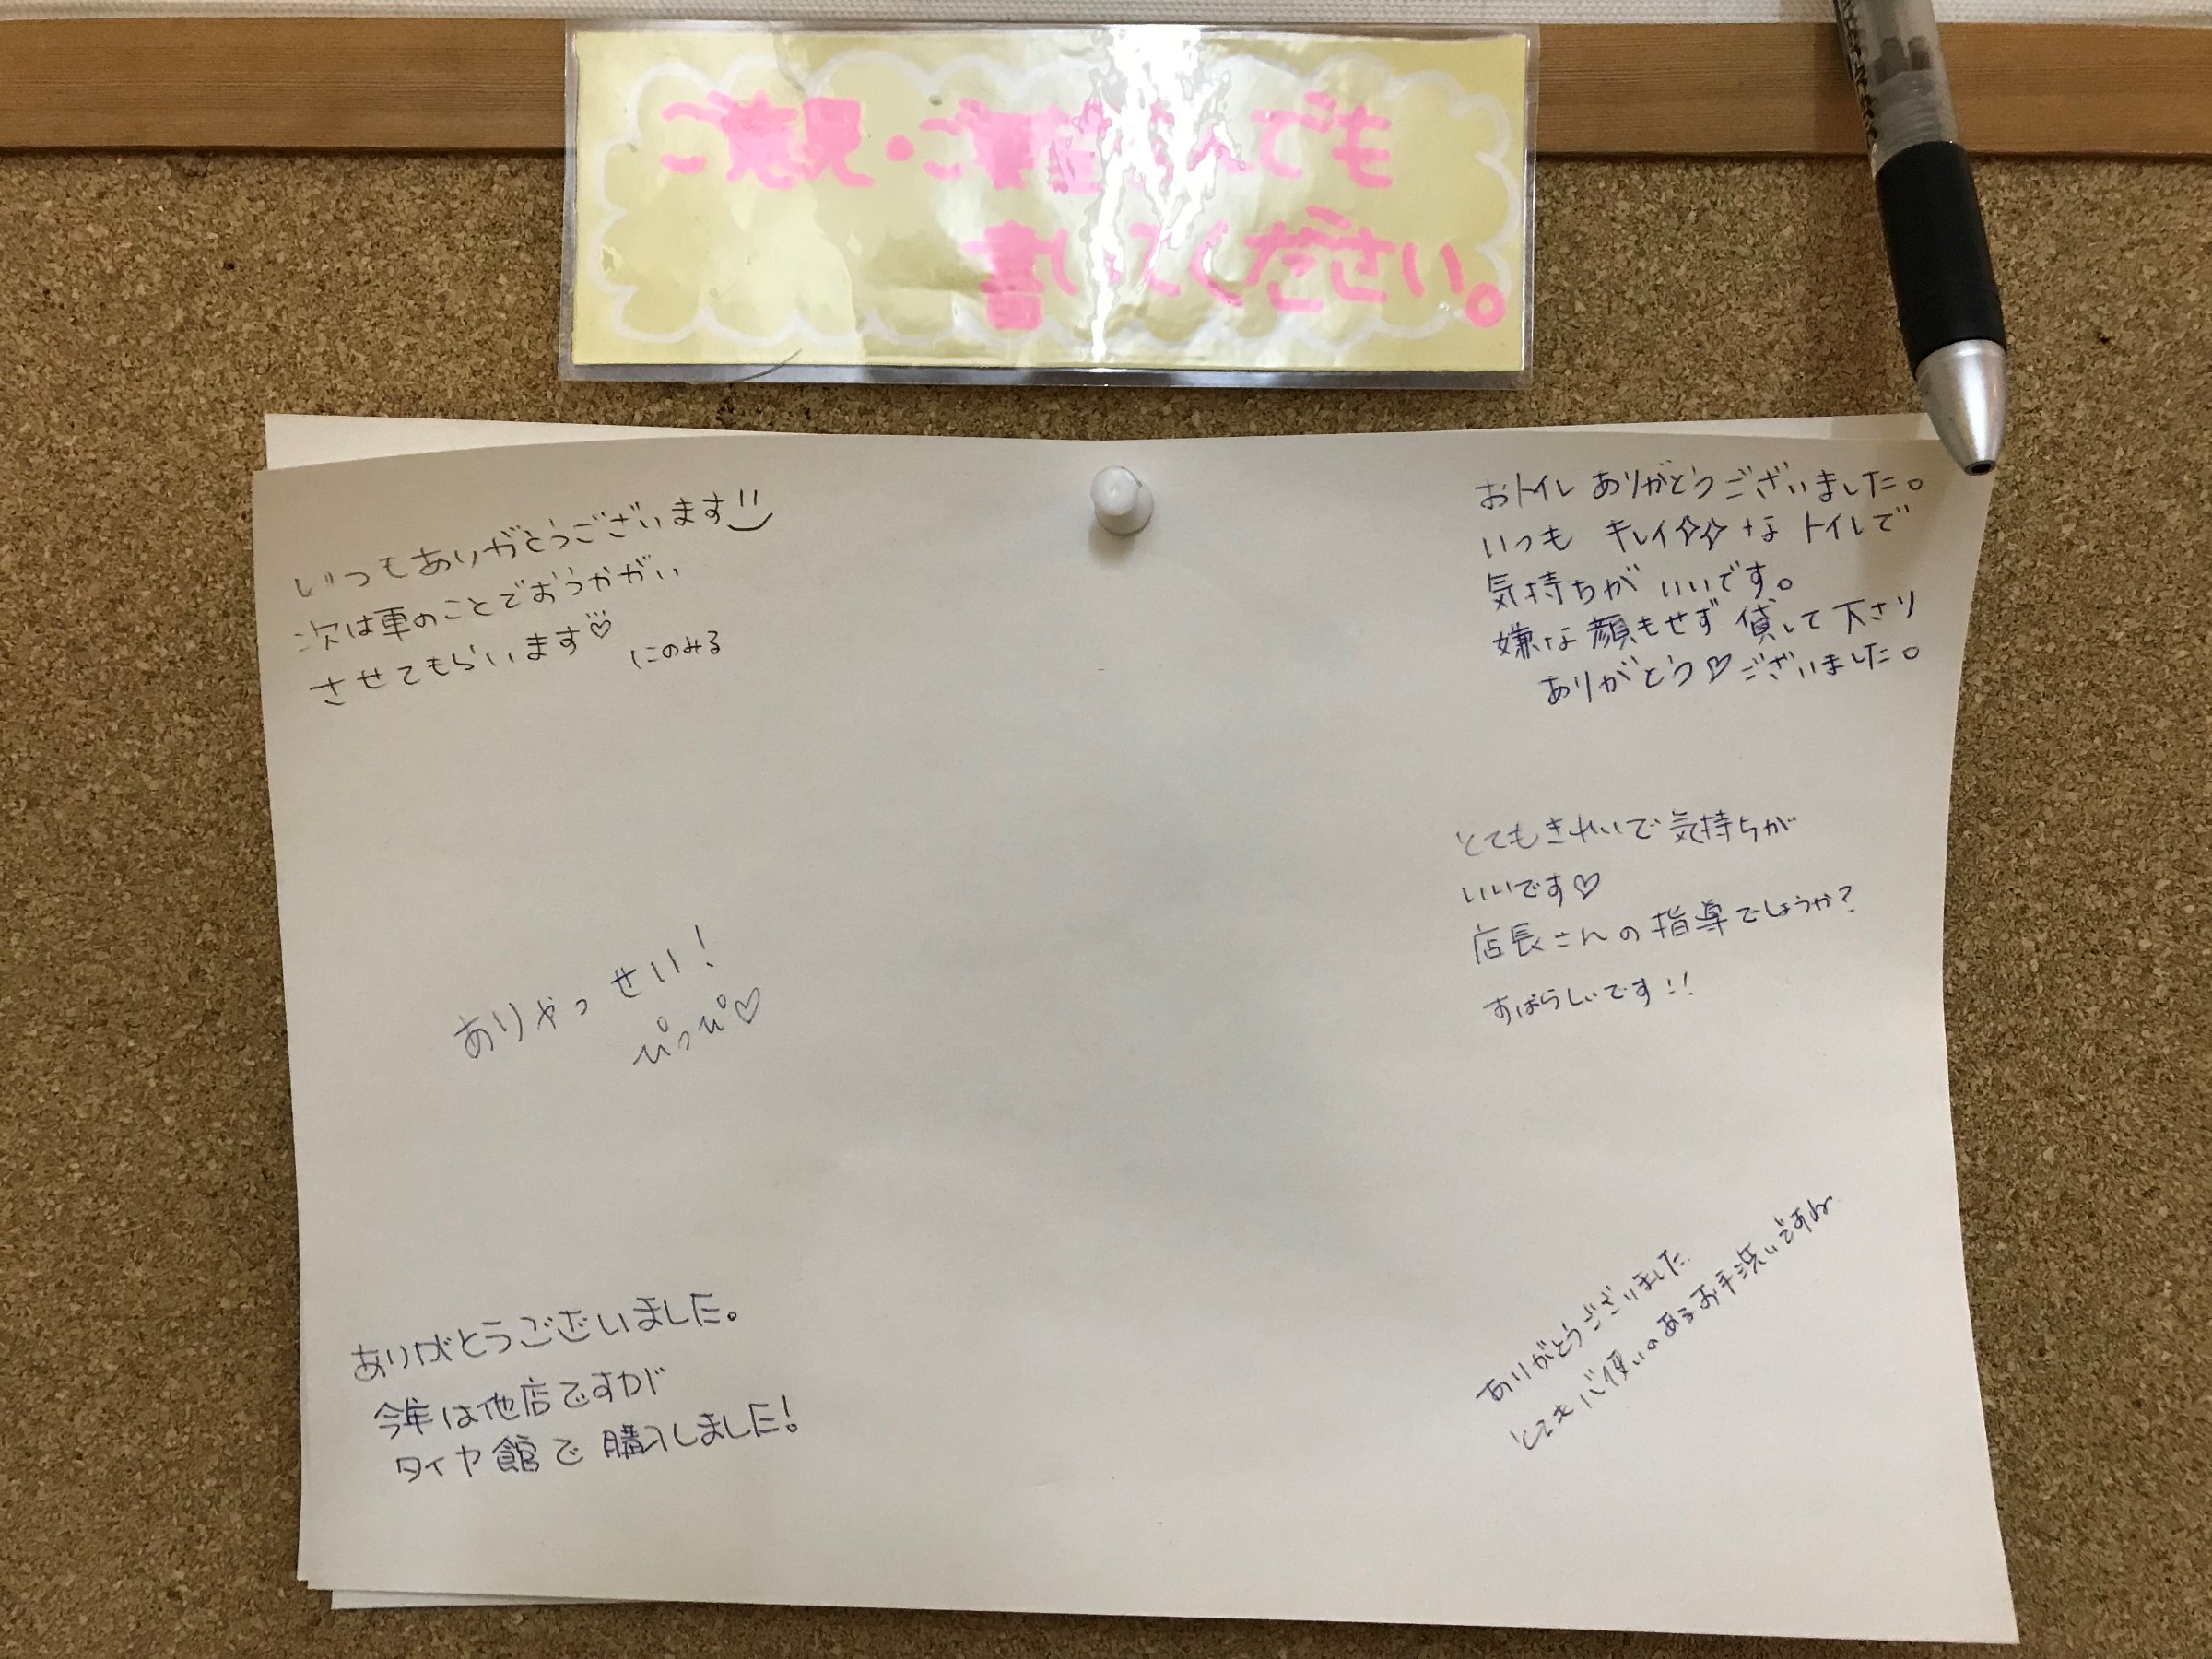 ご意見・ご要望なんでも
書いてください。
いつもありがとうございます!!
次は車のことでおうかがい
させてもらいます♡
にのみる
ありやっせい!
ぴっぴ♡
ありがとうございました。
今年は他店ですが
タイヤ館で購入しました!
おトイレありがとうございました。
いつも キレイ☆☆な トイレで
気持ちが いいです。
嫌な顔もせず 貸して下さり
ありがとう♡ございました。
とてもきれいで気持ちが
いいです♡
店長さんの指導でしょうか?
すばらしいです!!
ありがとうございました
とても心使いのあるお手洗いですね